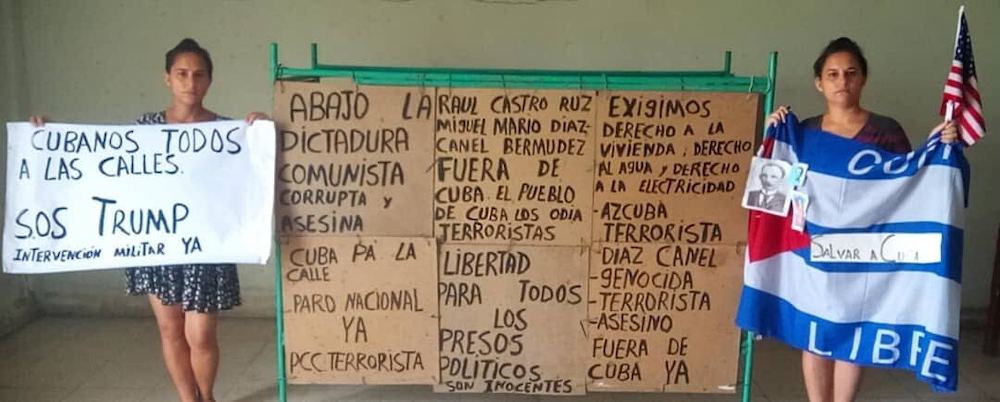 CUBANOS TODOS
A LAS CALLES.
S.O.S TRUMP
INTERVENCIÓN MILITAR YA
ABAJO LA
DICTADURA
COMUNISTA
CORRUPTA Y
ASESINA
RAUL CASTRO RUZ
MIGUEL MARIO DIAZ-
CANEL BERMUDEZ
FUERA DE
CUBA. EL PUEBLO
DE CUBA LOS ODIA
TERRORISTAS
EXIGIMOS
DERECHO A LA
VIVIENDA, DERECHO
AL AGUA Y DERECHO
A LA ELECTRICIDAD
-AZCUBA
TERRORISTA
CUBA PA LA
CALLE
-PARO NACIONAL
YA
PCC TERRORISTA
LIBERTAD
PARA TODOS
LOS
PRESOS
POLÍTICOS
SON INOCENTES
-DIAZ CANEL
-GENOCIDA
-TERRORISTA
-ASESINO
FUERA DE
CUBA YA
SALVAR A CUBA
LIBRE